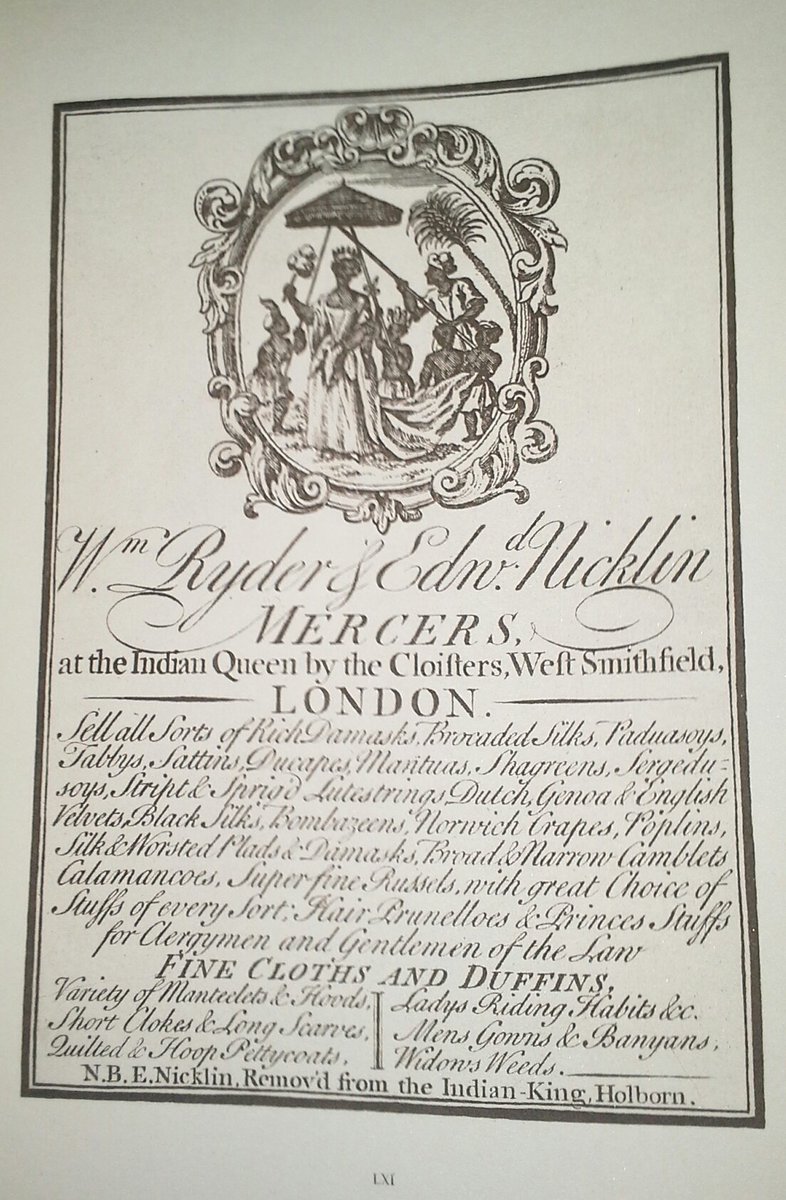 Wm. Ryder & Edwd. Nicklin
MERCERS,
at the Indian Queen by the Cloiſters, Weſt Smithfield,
LONDON.
Sell all Sorts of Rich Damasks, Brocaded Silks, Paduasoys,
Tabbys, Sattins, Ducapes, Mantuas, Shagreens, Sergedu-
soys, Stript & Sprig'd Lutestrings, Dutch, Genoa & English
Velvets, Black Silks, Bombazeens, Norwich Crapes, Poplins,
Silk & Worsted Plads & Damasks, Broad & Narrow Camblets
Calamancoes, Superfine Russels, with great Choice of
Stuffs of every Sort; Hair Prunelloes & Princes Stuffs
for Clergymen and Gentlemen of the Law
FINE CLOTHS AND DUFFINS,
Variety of Manteelets & Hoods,
Short Clokes & Long Scarves,
Quilted & Hoop Pettycoats,
Ladys Riding Habits &c.
Mens Gowns & Banyans,
Widows Weeds.
N.B. E. Nicklin, Remov'd from the Indian-King, Holborn.
LXI